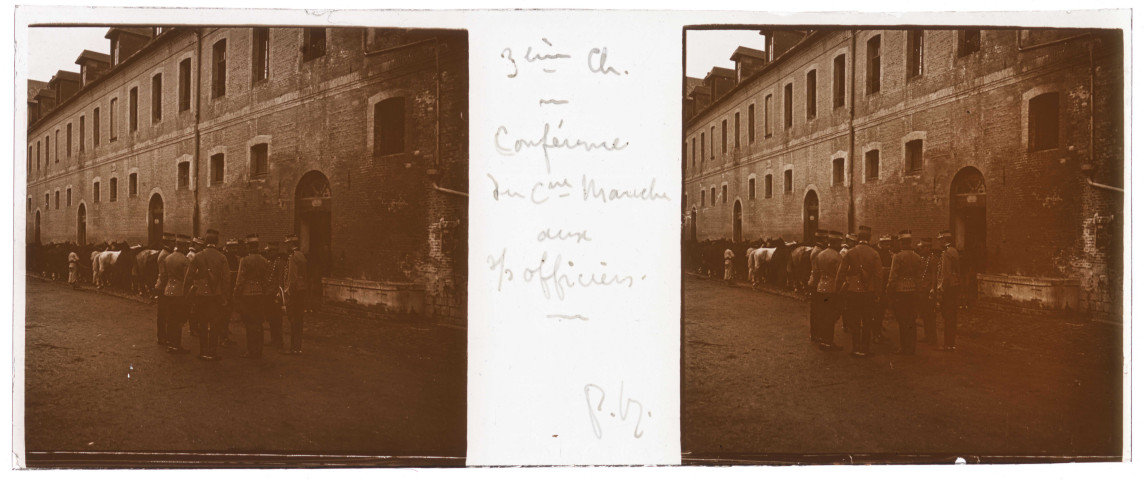 3ème Ch.
Conférence
du Cne Mareche
aux
s/officiers.
P. Vz.